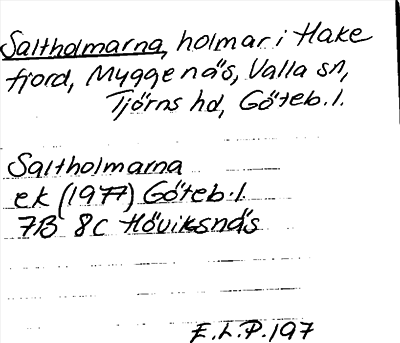 Saltholmarna, holmar i Hake
fjord, Myggenäs, Valla sn,
Tjörns hd, Göteb. l.
Saltholmarna
ek (1977) Göteb. l
7B 8c Höviksnäs
E.L.P. 197